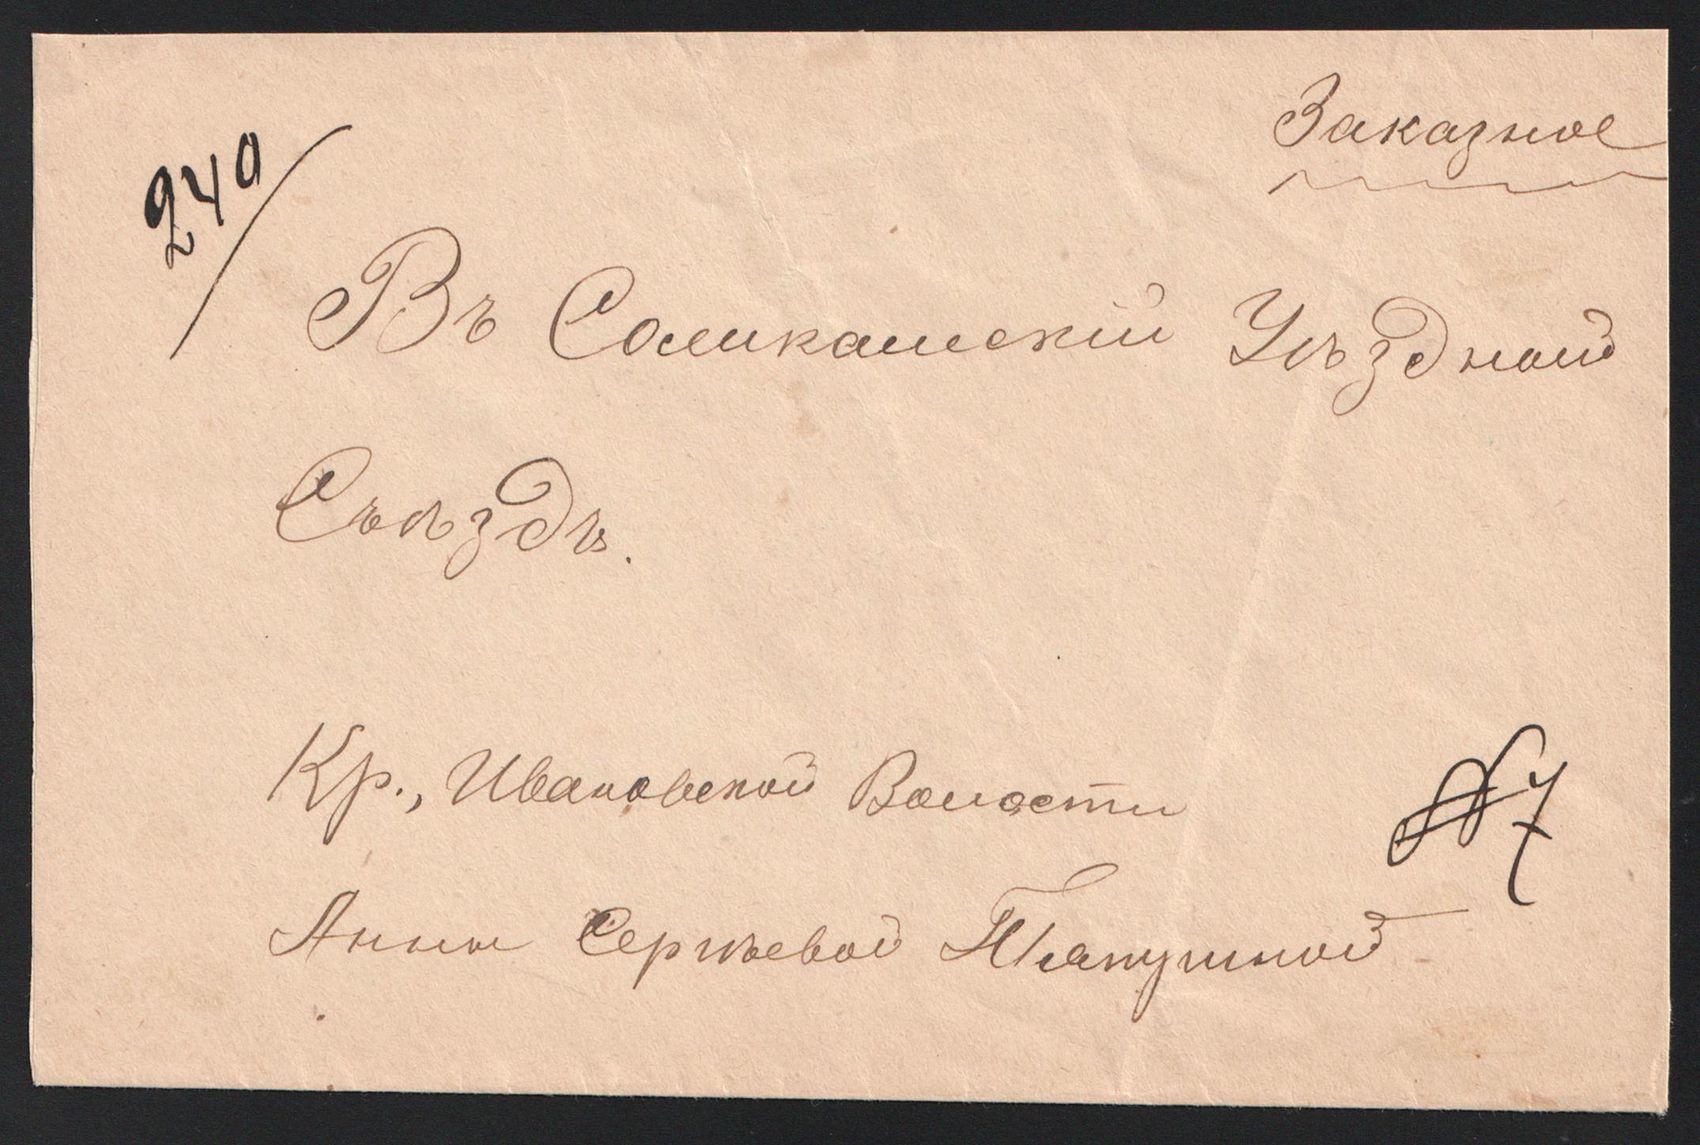 Заказное
240
Въ Соликамскій Уѣздной
Съѣздъ.
Кр., Ивановской Волости
№ 7
Анны Сергѣевой